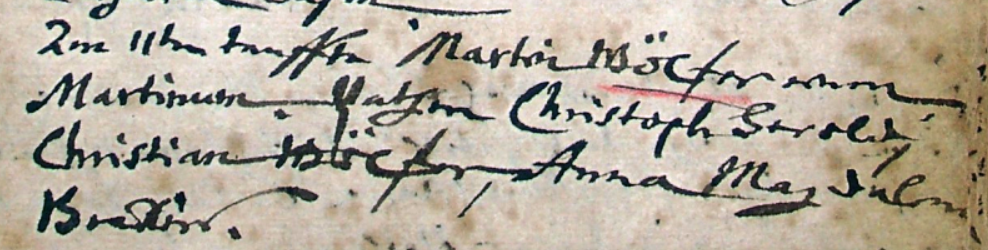 Den 11ten tauffte Martin Wöcfer einen
Martinum. Pathen Christoph Herold,
Christian Wöcfer, Anna Magdalena